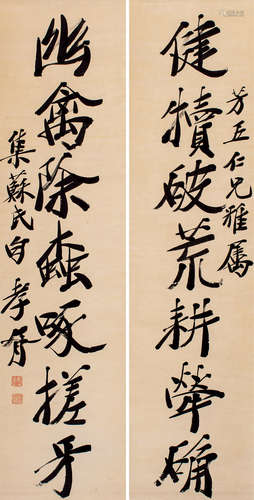 芳丘仁兄雅屬
健犢破荒耕犖确
幽禽除蠹啄槎牙
集蘇氏句 孝胥